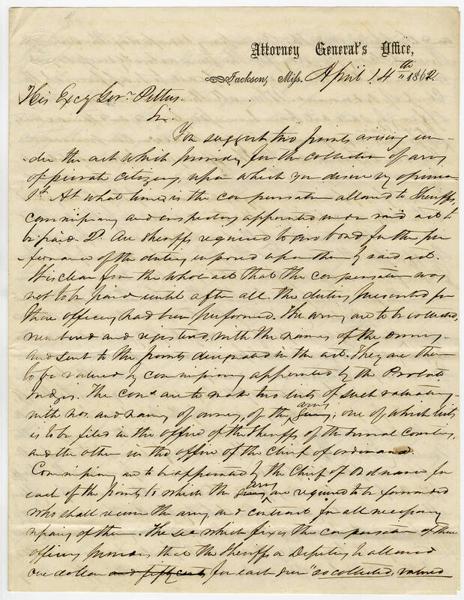 Attorney General's Office,
Jackson, Miss. April 14th 1862
His Excy Gov. Pettus.
Sir.
You suggest two points arising un-
der the act which provides for the collection of arms
of private citizens, upon which you desire my opinion
1st At what time is the compensation allowed to Sheriffs,
commissioners and inspectors appointed under said act to
be paid 2d Are sheriffs required to give bond for the per-
formance of the duties imposed upon them by said act.
It is clear from the whole act that the compensation was
not to be paid until after all the duties prescribed for
these officers had been performed. The arms are to be collected,
numbered and registered, with the names of the owners,
and sent to the points designated in the act. They are then
to be valued by commissioners appointed by the Probate
Judges. The coms are to make two lists of such valuation
with nos. and names of owners, of the arms, one of which lists
is to be filed in the office of the Sheriffs of the several Counties,
and the other in the office of the chief of ordnance.
Commissioners are to be appointed by the Chief of Ordnance for
each of the points to which the arms are required to be forwarded
who shall receive the arms and contract for all necessary
repairs of them. The sec which fixes the compensation of these
officers provides that the Sheriff or Deputy be allowed
one dollar and fifty cents for each gun "so collected, valued